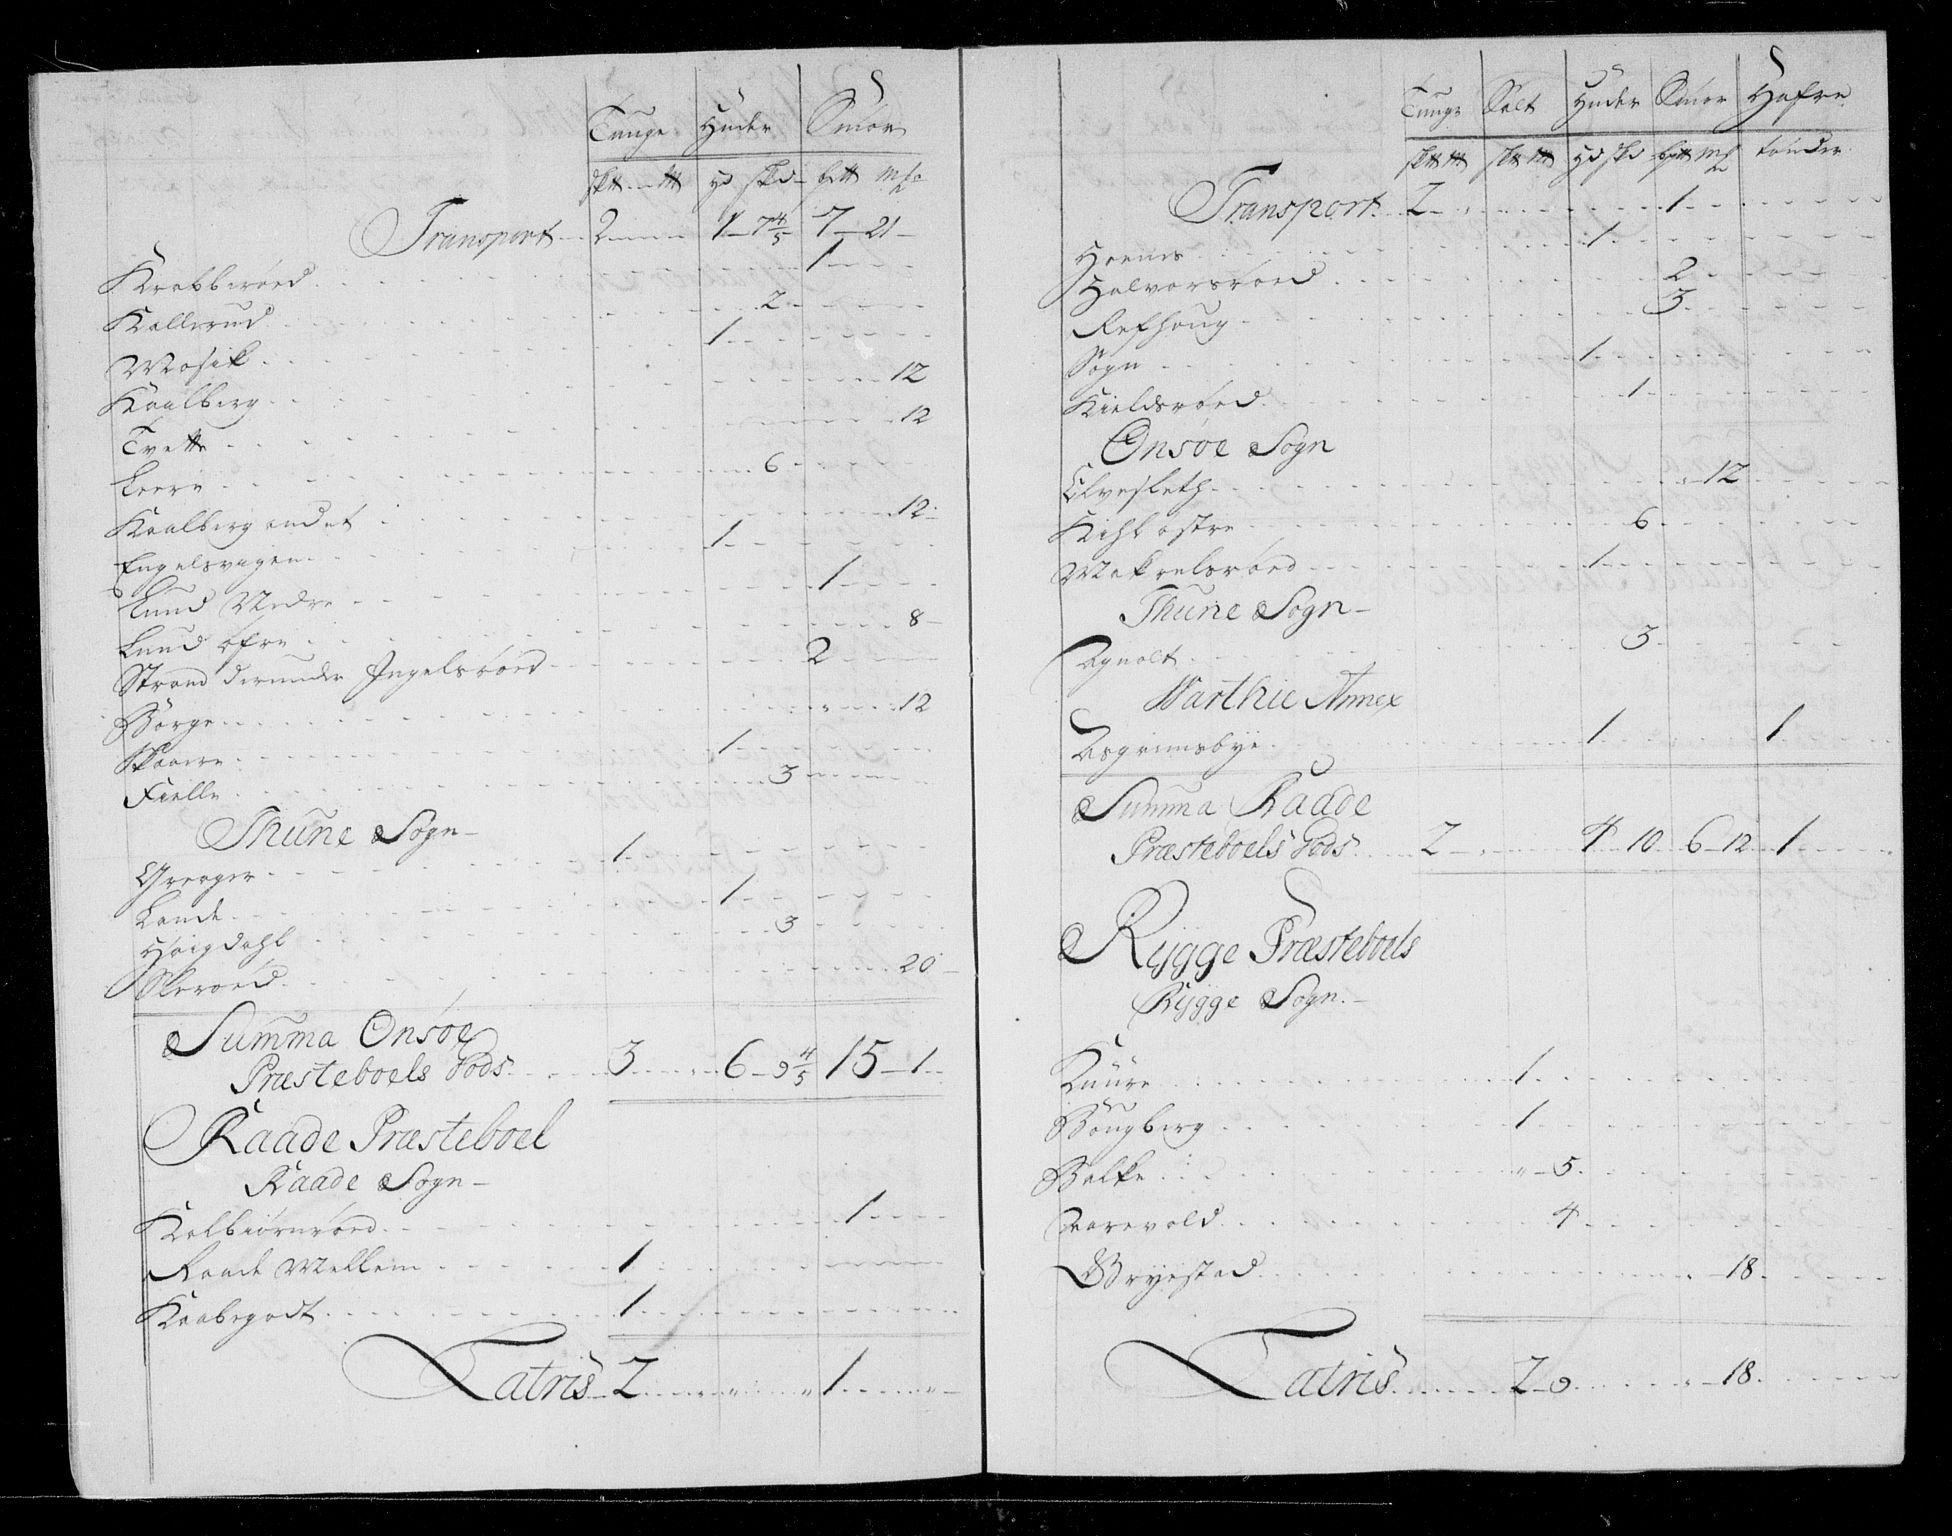 Tunge Huder Smör
Transport 2 1 7 4/5 7 21
Krabberöed 1
Kollerud 2
Mosik 1
Kaalberg 12
Tvette 12
Leere 6
Kaalberg andet 12
Engelsvigen 1
Lund Nedre 1
Lund öfre 8
Strand derunder Ingelsröed 2
Börge 12
Skaare 1
Fielle 3
Thune Sogn
Greager 1
Lande 1
Höigdahl 3
20
Summa Onsöe
Præsteboels Gods 3 6 9 4/5 15 1
Raade Præsteboel
Raade Sogn
Kolbiörnröed 1
Raade Mellem 1
Kaabegodt 1
Latris 2 1
Tunge Salt Huder Smör Hafre
tönder
Transport 2 1
Hoenes 1
Halvorsröed 2
Refhoug 3
Sogn 1
Kieldsröed 1
Onsöe Sogn
Elvesleth 12
Kihl östre 6
Makrelsröed 1
Thune Sogn
Agnalt 3
Warthie Annex
Asgrimsbye 1 1
Summa Raade
Præsteboels Gods 2 4 10 6 12 1
Rygge Præsteboels
Rygge Sogn
Kuure 1
Böugberg 1
Balke 5
Aarevold 4
Bryestad 18
Latris 2 9 18